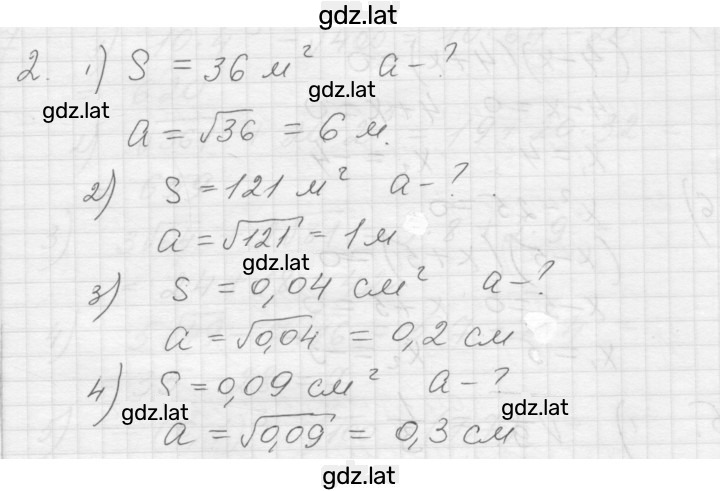 gdz.lat
2. 1) S = 36 м² a - ?
gdz.lat gdz.lat
a = √36 = 6 м.
2) S = 121 м² a - ? .
a = √121 = 1 м
gdz.lat
3) S = 0,04 см² a - ?
a = √0,04 = 0,2 см
4) S = 0,09 см² a - ?
gdz.lat gdz.lat
a = √0,09 = 0,3 см
gdz.lat